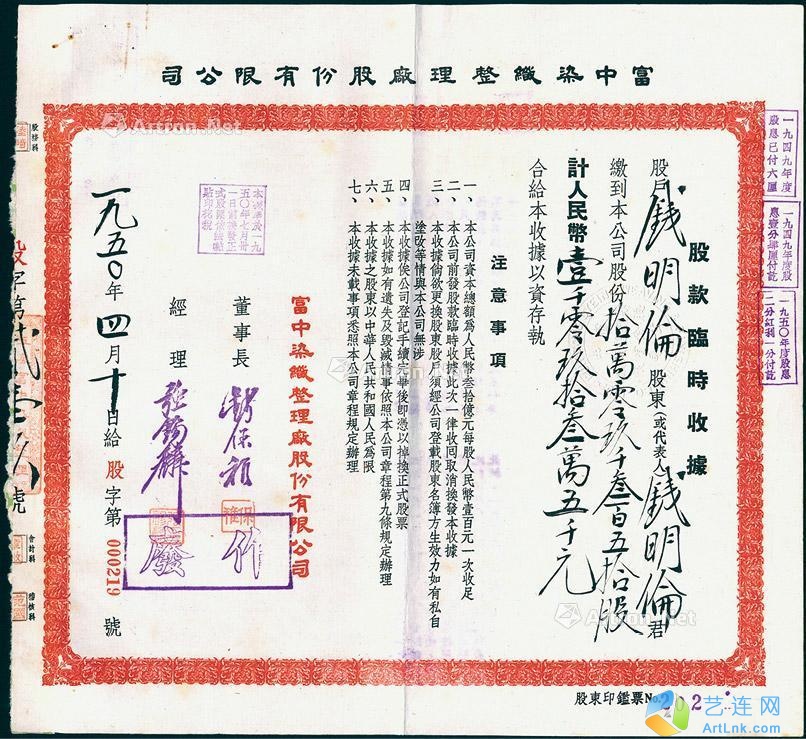 富中染織整理廠股份有限公司
股款臨時收據
股戶錢明倫股東(或代表人)錢明倫君
繳到本公司股份拾萬零玖千叁百五拾股
計人民幣壹千零玖拾叁萬五千元
合給本收據以資存執
注意事項
一、本公司資本總額為人民幣叁拾億元每股人民幣壹百元一次收足
二、本公司前發股款臨時收據此次一律收回取消換發本收據
三、本收據倘欲更換股東股戶須經公司登載股東名簿方生效力如有私自
塗改等情與本公司無涉
四、本收據俟公司登記手續完畢後即憑以掉換正式股票
五、本收據如有遺失及毀滅情事依照本公司章程第九條規定辦理
六、本收據之股東以中華人民共和國人民為限
七、本收據未載事項悉照本公司章程規定辦理
富中染織整理廠股份有限公司
董事長
經理
作廢
一九五〇年四月十日給
股字第000219號
股字第貳壹玖號
股務科
會計科
稽核科
一九四九年度
股息已付六厘
一九四九年度股
一九五〇年度股息
二分紅利一分付訖
股東印鑑票No.202
Artron.Net
艺连网
ArtLnk.com